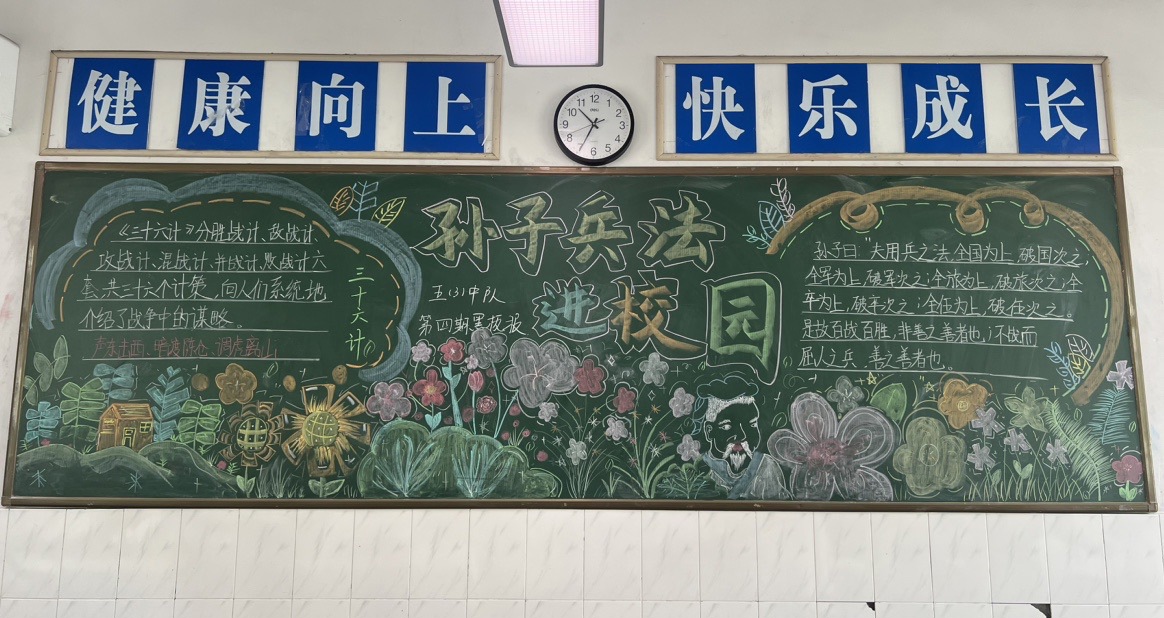 健康向上
快乐成长
12
1
2
3
4
5
6
7
8
9
10
11
孙子兵法
进校园
五(3)中队
第四期黑板报
《三十六计》分胜战计、敌战计、
攻战计、混战计、并战计、败战计六
套,共三十六个计策,向人们系统地
介绍了战争中的谋略。
声东击西、暗渡陈仓、调虎离山
三十六计
孙子曰:"夫用兵之法,全国为上,破国次之,
全军为上,破军次之;全旅为上,破旅次之;全
卒为上,破卒次之;全伍为上,破伍次之。
是故百战百胜,非善之善者也;不战而
屈人之兵,善之善者也。